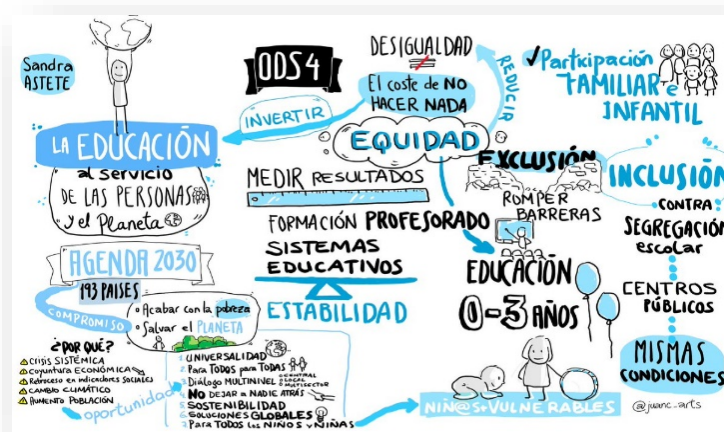 Sandra
ASTETE
LA EDUCACIÓN
al servicio
DE LAS PERSONAS
y el Planeta
AGENDA 2030
193 PAISES
COMPROMISO
• Acabar con la pobreza
• Salvar el PLANETA
¿POR QUÉ?
CRISIS SISTÉMICA
COYUNTURA ECONÓMICA
Retroceso en indicadores sociales
CAMBIO CLIMÁTICO
AUMENTO POBLACIÓN
oportunidad
1 UNIVERSALIDAD
2 Para TODOS para TODAS
3 Diálogo MULTINIVEL
CENTRAL
LOCAL
MULTISECTOR
4 NO DEJAR A NADIE ATRÁS
5 SOSTENIBILIDAD
6 SOLUCIONES GLOBALES
7 Para TODOS LOS NIÑOS y NIÑAS
ODS 4
INVERTIR
DESIGUALDAD
El coste de NO
HACER NADA
REDUCIR
EQUIDAD
MEDIR RESULTADOS
FORMACIÓN PROFESORADO
SISTEMAS
EDUCATIVOS
ESTABILIDAD
✓Participación
FAMILIAR e
INFANTIL
EXCLUSIÓN
ROMPER
BARRERAS
EDUCACIÓN
0-3 AÑOS
NIÑ@S+VULNERABLES
INCLUSIÓN
CONTRA
SEGREGACIÓN
escolar
CENTROS
PÚBLICOS
MISMAS
CONDICIONES
@juanc_arts